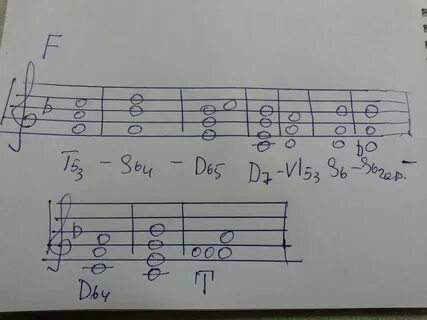 F
T53 - S64 - D65 D7 - VI53 S6 - S6гар. -
D64 T